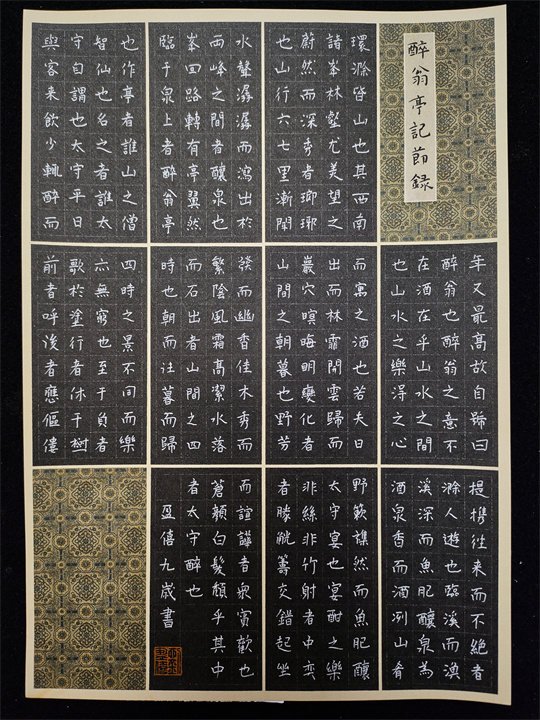 醉翁亭記節錄
環滁皆山也其西南
諸峯林壑尤美望之
蔚然而深秀者瑯琊
也山行六七里漸聞
水聲潺潺而瀉出於
兩峰之間者釀泉也
峯回路轉有亭翼然
臨于泉上者醉翁亭
也作亭者誰山之僧
智仙也名之者誰太
守自謂也太守平日
與客来飲少輒醉而
年又最高故自號曰
醉翁也醉翁之意不
在酒在乎山水之間
也山水之樂淂之心
而寓之酒也若夫日
出而林霏開雲歸而
巖穴暝晦明變化者
山間之朝暮也野芳
發而幽香佳木秀而
繁陰風霜高潔水落
而石出者山間之四
時也朝而往暮而歸
四時之景不同而樂
亦無窮也至于負者
歌於塗行者休于樹
前者呼後者應傴僂
提攜往来而不絕者
滁人遊也臨溪而漁
溪深而魚肥釀泉為
酒泉香而酒冽山肴
野蔌譙然而魚肥釀
太守宴也宴酣之樂
非絲非竹射者中奕
者勝觥籌交錯起坐
而諠譁者衆賓歡也
蒼顏白髮頽乎其中
者太守醉也
盈僖九歲書